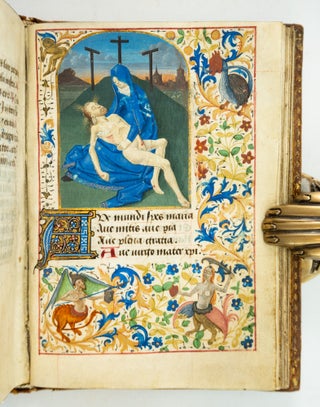 AUe mundi spes maria
Aue mitis aue pia
Aue plena gratia.
Aue uirgo mater xpi.